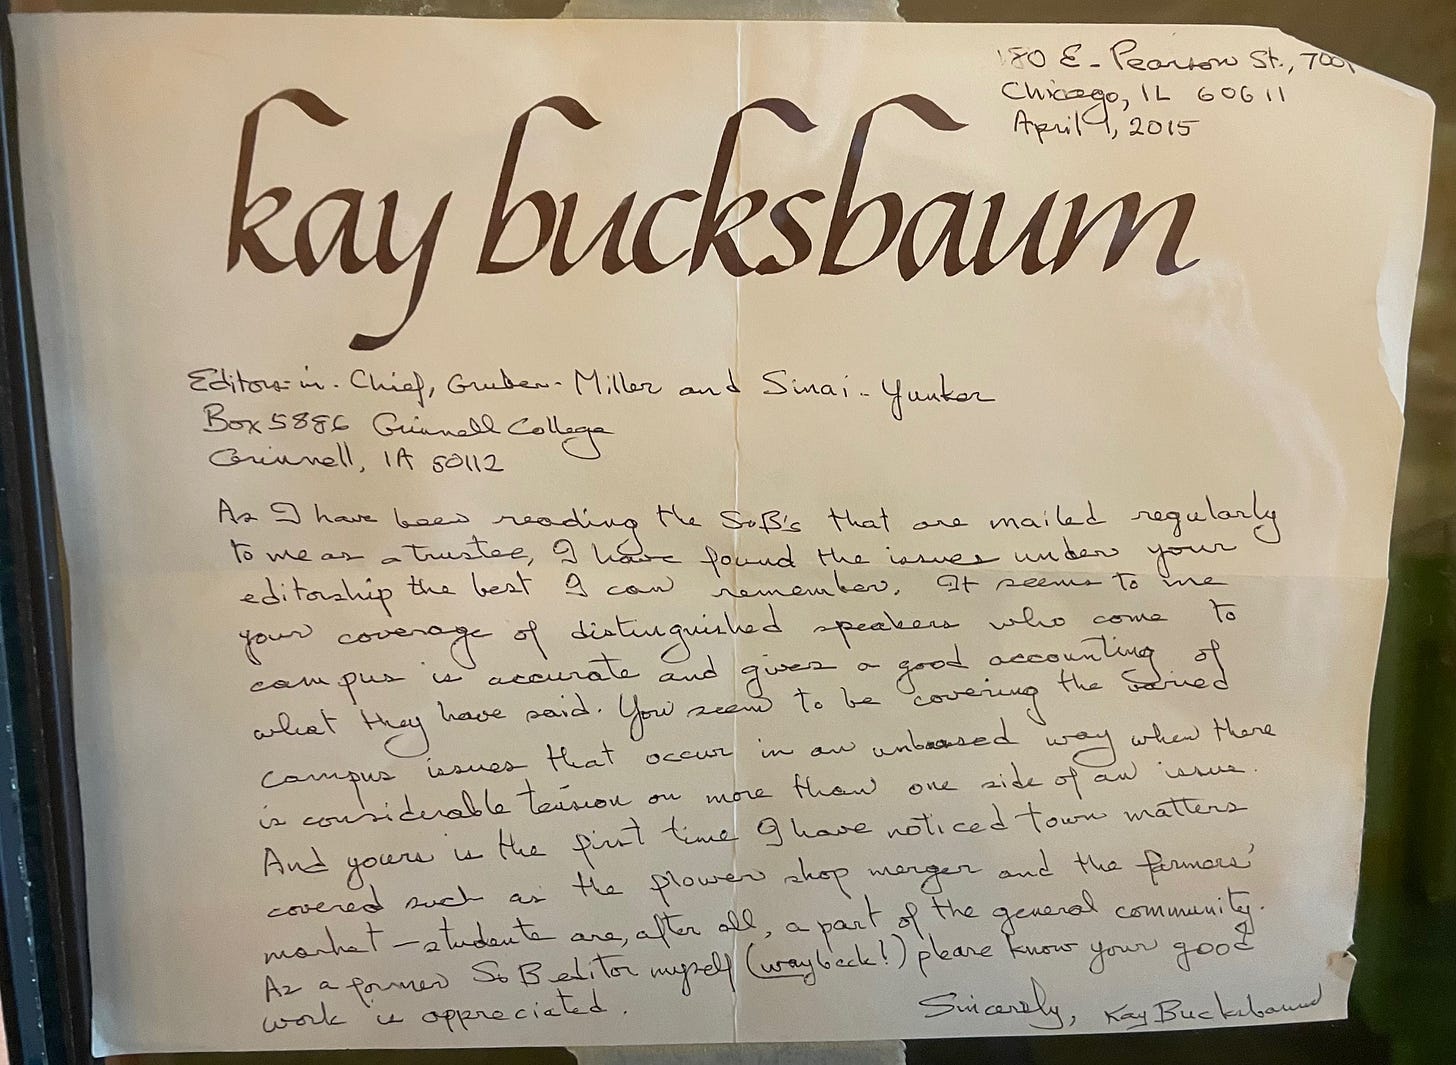 180 E. Pearson St., 7001
Chicago, IL 60611
April 1, 2015
kay bucksbaum
Editors-in-Chief, Gruber-Miller and Sinai-Yunker
Box 5886 Grinnell College
Grinnell, IA 50112
As I have been reading the S&B's that are mailed regularly
to me as a trustee, I have found the issues under your
editorship the best I can remember. It seems to me
your coverage of distinguished speakers who come to
campus is accurate and gives a good accounting of
what they have said. You seem to be covering the varied
campus issues that occur in an unbiased way when there
is considerable tension on more than one side of an issue.
And yours is the first time I have noticed town matters
covered such as the flower shop merger and the farmers'
market – students are, after all, a part of the general community.
As a former S&B editor myself (way back!) please know your good
work is appreciated.
Sincerely, Kay Bucksbaum